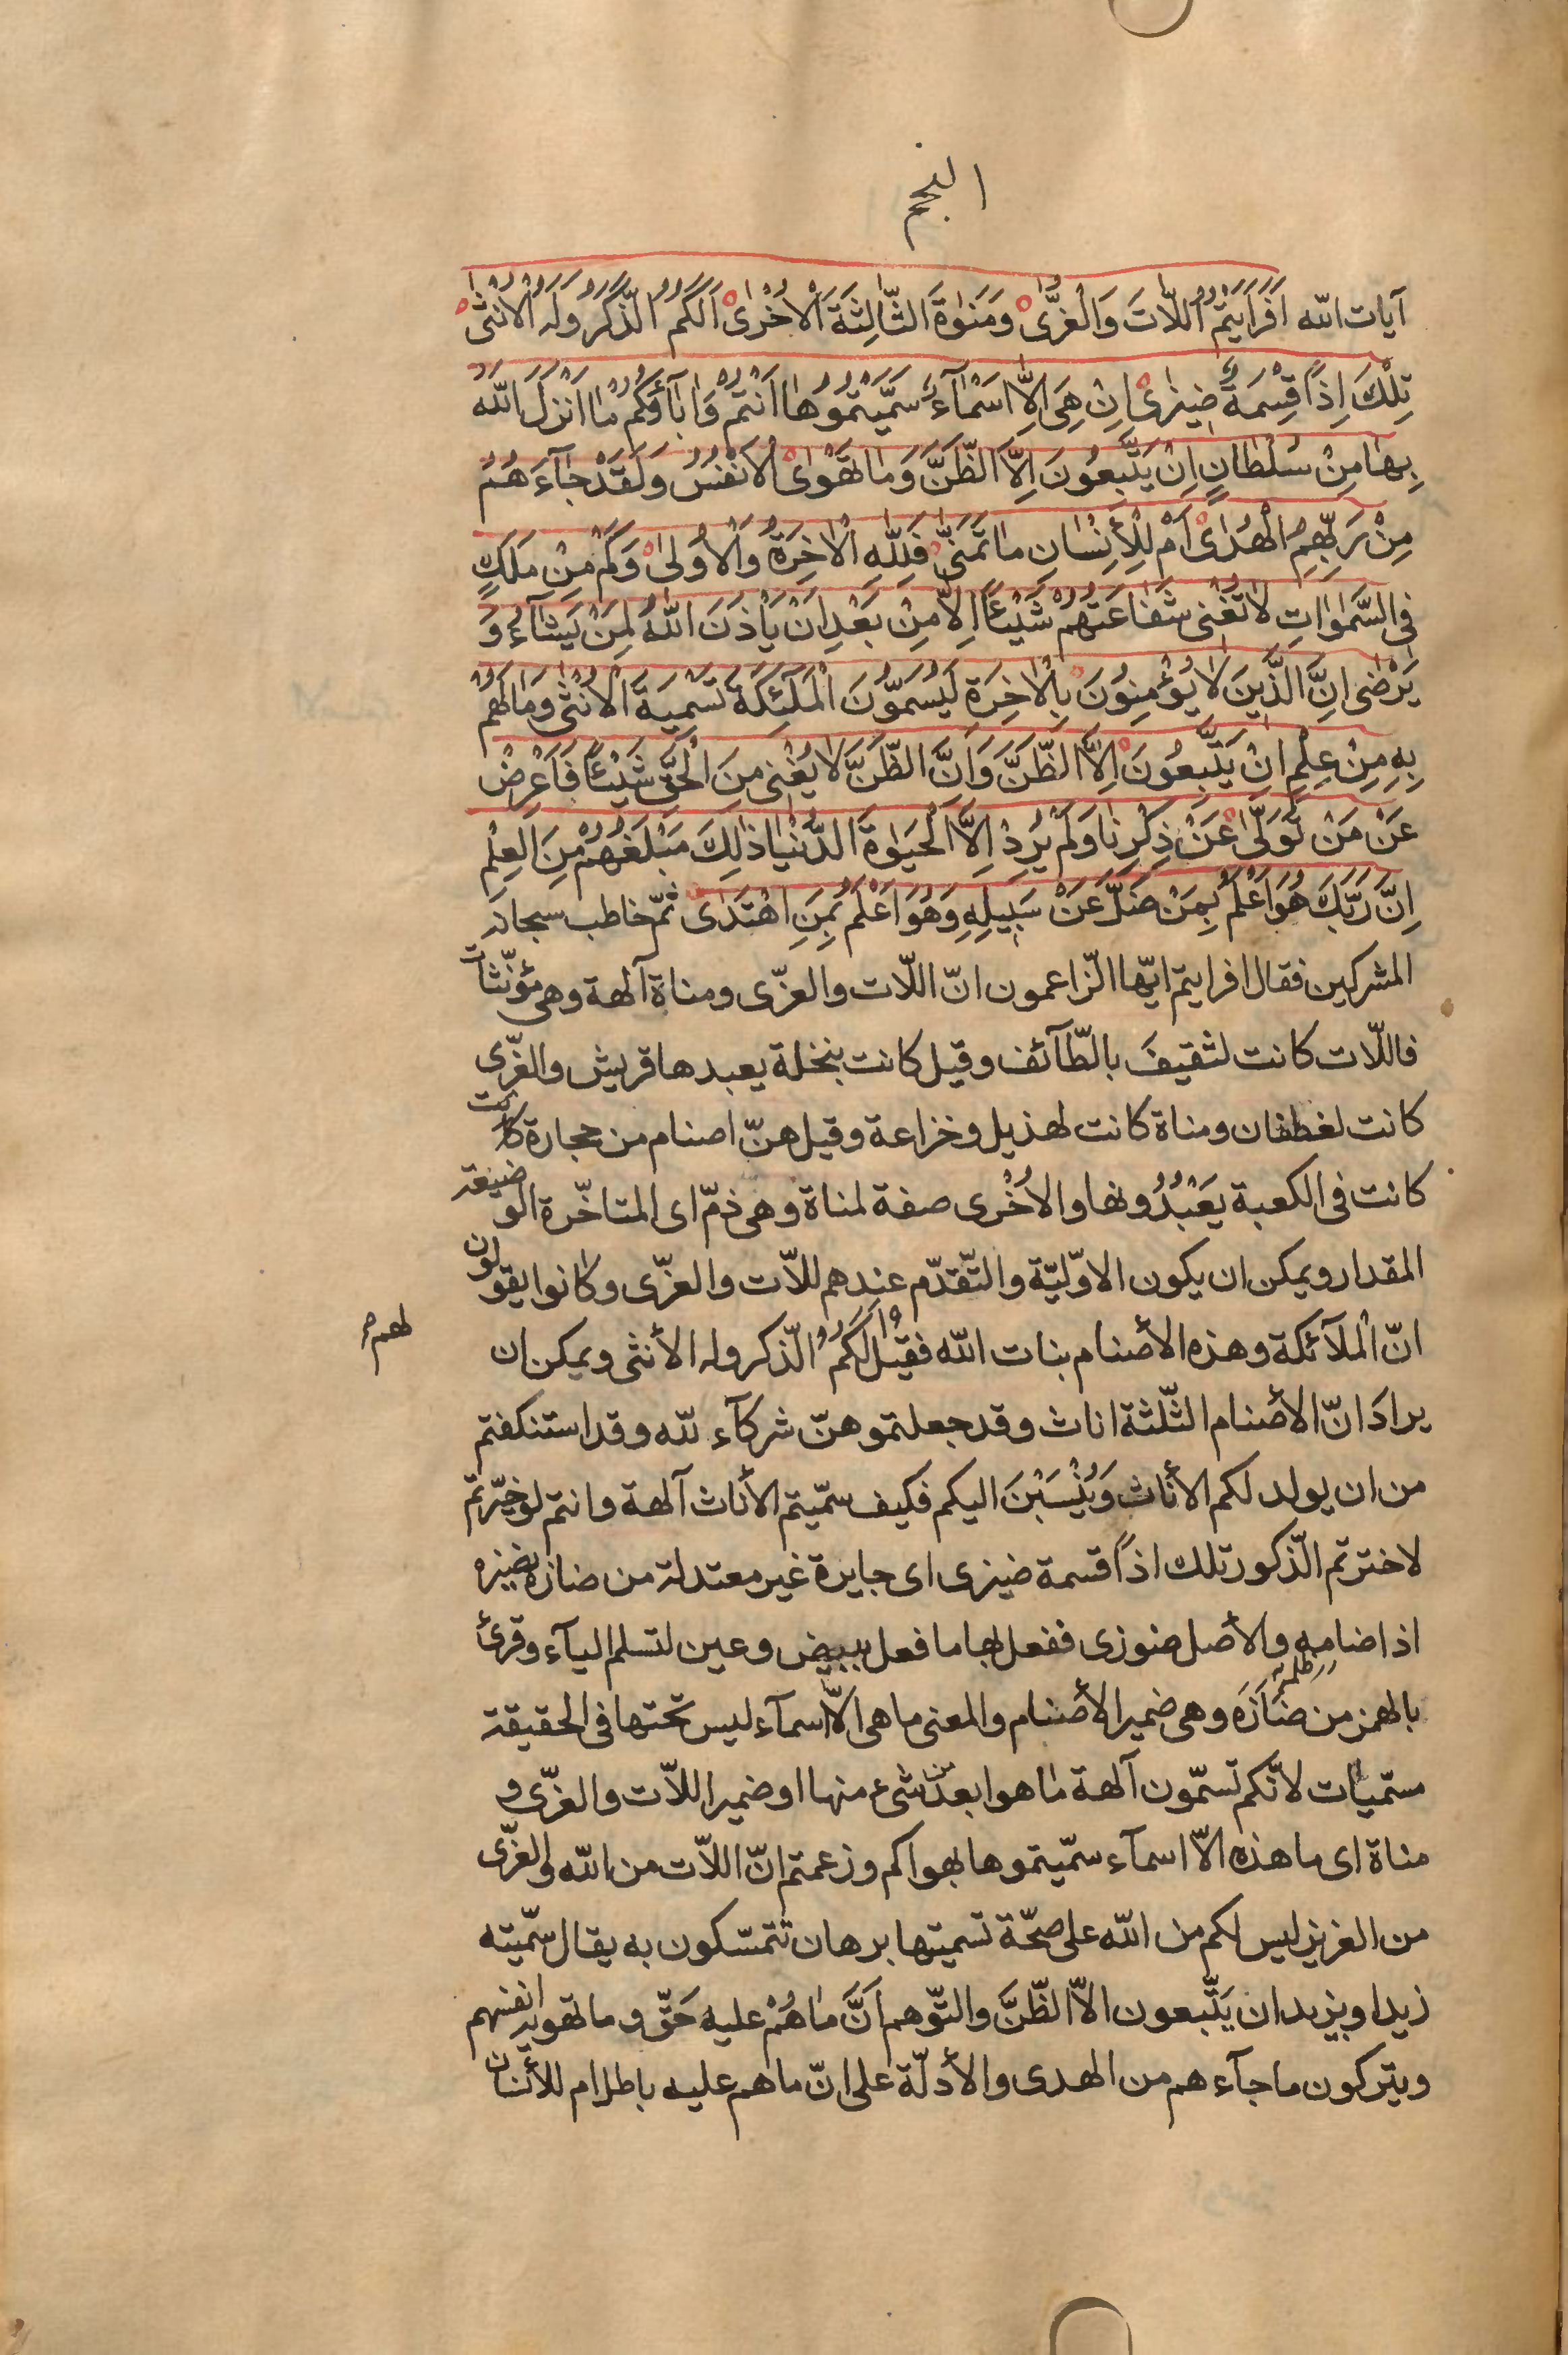 النجم
آيات الله اَفَرَاَيْتُمُ اللّاتَ وَالْعُزّٰى وَمَنٰوةَ الثّالِثَةَ الْاُخْرٰى اَلَكُمُ الذَّكَرُ وَلَهُ الْاُنْثٰى
تِلْكَ اِذاً قِسْمَةٌ ضِيزٰى اِنْ هِيَ اِلّا اَسْمآءٌ سَمَّيْتُمُوهٰا اَنْتُمْ وَاٰبآؤُكُمْ مٰا اَنْزَلَ اللّٰهُ
بِهٰا مِنْ سُلْطٰانٍ اِنْ يَتَّبِعُونَ اِلَّا الظَّنَّ وَمٰا تَهْوٰى الْاَنْفُسُ وَلَقَدْ جٰآءَهُمْ
مِنْ رَبِّهِمُ الْهُدٰى اَمْ لِلْأِنْسٰانِ مٰا تَمَنّٰى فَلِلّٰهِ الْاٰخِرَةُ وَالْاُولٰى وَكَمْ مِنْ مَلَكٍ
فِى السَّمٰوٰاتِ لٰا تُغْنى شَفٰاعَتُهُمْ شَيْئاً اِلّٰا مِنْ بَعْدِ اَنْ يَأْذَنَ اللّٰهُ لِمَنْ يَشٰآءُ وَ
يَرْضٰى اِنَّ الَّذينَ لٰا يُؤْمِنُونَ بِالْاٰخِرَةِ لَيُسَمُّونَ الْمَلٰئِكَةَ تَسْمِيَةَ الْاُنْثٰى وَمٰا لَهُمْ
بِهِ مِنْ عِلْمٍ اِنْ يَتَّبِعُونَ اِلَّا الظَّنَّ وَاِنَّ الظَّنَّ لٰا يُغْنى مِنَ الْحَقِّ شَيْئاً فَاَعْرِضْ
عَنْ مَنْ تَوَلّٰى عَنْ ذِكْرِنٰا وَلَمْ يُرِدْ اِلَّا الْحَيٰوةَ الدُّنْيٰا ذٰلِكَ مَبْلَغُهُمْ مِنَ الْعِلْمِ
اِنَّ رَبَّكَ هُوَ اَعْلَمُ بِمَنْ ضَلَّ عَنْ سَبيلِهِ وَهُوَ اَعْلَمُ بِمَنِ اهْتَدٰى ثمّ خاطب سبحانه
المشركين فقال افرايتم ايّها الزّاعمون انّ اللّات والعزّى ومناة آلهة وهى مؤنّثات
فاللّات كانت لثقيفَ بالطّآئف وقيل كانت بنخلة يعبدها قريش والعزّى
كانت لغطفان ومناة كانت لهذيل وخزاعة وقيل هنّ اصنام من حجارة كانت
كانت فى الكعبة يَعْبُدُونها والاُخْرى صفة لمناة وهى ذمّ اى المتاخّرة الوضيعة
المقدار ويمكن ان يكون الاوّليّة والتّقدّم عندهم للّات والعزّى وكانوا يقولون
انّ الْملآئكة وهذه الأصنام بنات الله فقيل اَلَكُمُ الذّكر وله الأنثى ويمكن ان
لهم
يرادَ انّ الأصنام الثّلثة اناث وقد جعلتموهنّ شركآء للّه وقد استنكفتم
من ان يولد لكم الأناث وَيُنْسَبْنَ اليكم فكيف سمّيتم الأناث آلهة وانتم لو خيّرتم
لاخترتم الّذكور تلك اذاً قسمة ضيزى اى جايرة غير معتدلة من ضازه يضيزه
اذا ضامه والأصل ضوزى ففعل بها ما فعل ببيض وعين لتسلم اليآء وقرئ
بالهمز من ضَأزَه ظلمه وهى ضمير الأصنام والمعنى ما هى الّا اسمآء ليس تحتها فى الحقيقة
مسّميات لانّكم تسمّون آلهة ما هو ابعد من شىء منها او ضمير اللّات والعزّى و
مناة اى ما هذه الّا اسمآء سمّيتموها بهواكم وزعمتم انّ اللّات من الله والعزّى
من العزيز ليس لكم من الله على صحّة تسميتها برهان تتمسّكون به يقال سمّيته
زيدا وبزيد ان يَتّبعون الّا الظّنَّ والتّوهم اَنَّ مٰا هُمْ عليه حَقّ وما تهويه انفسهم
ويتركون ما جآءهم من الهدى والأدلّة على انّ ما هم عليه باطل ام للأنسان